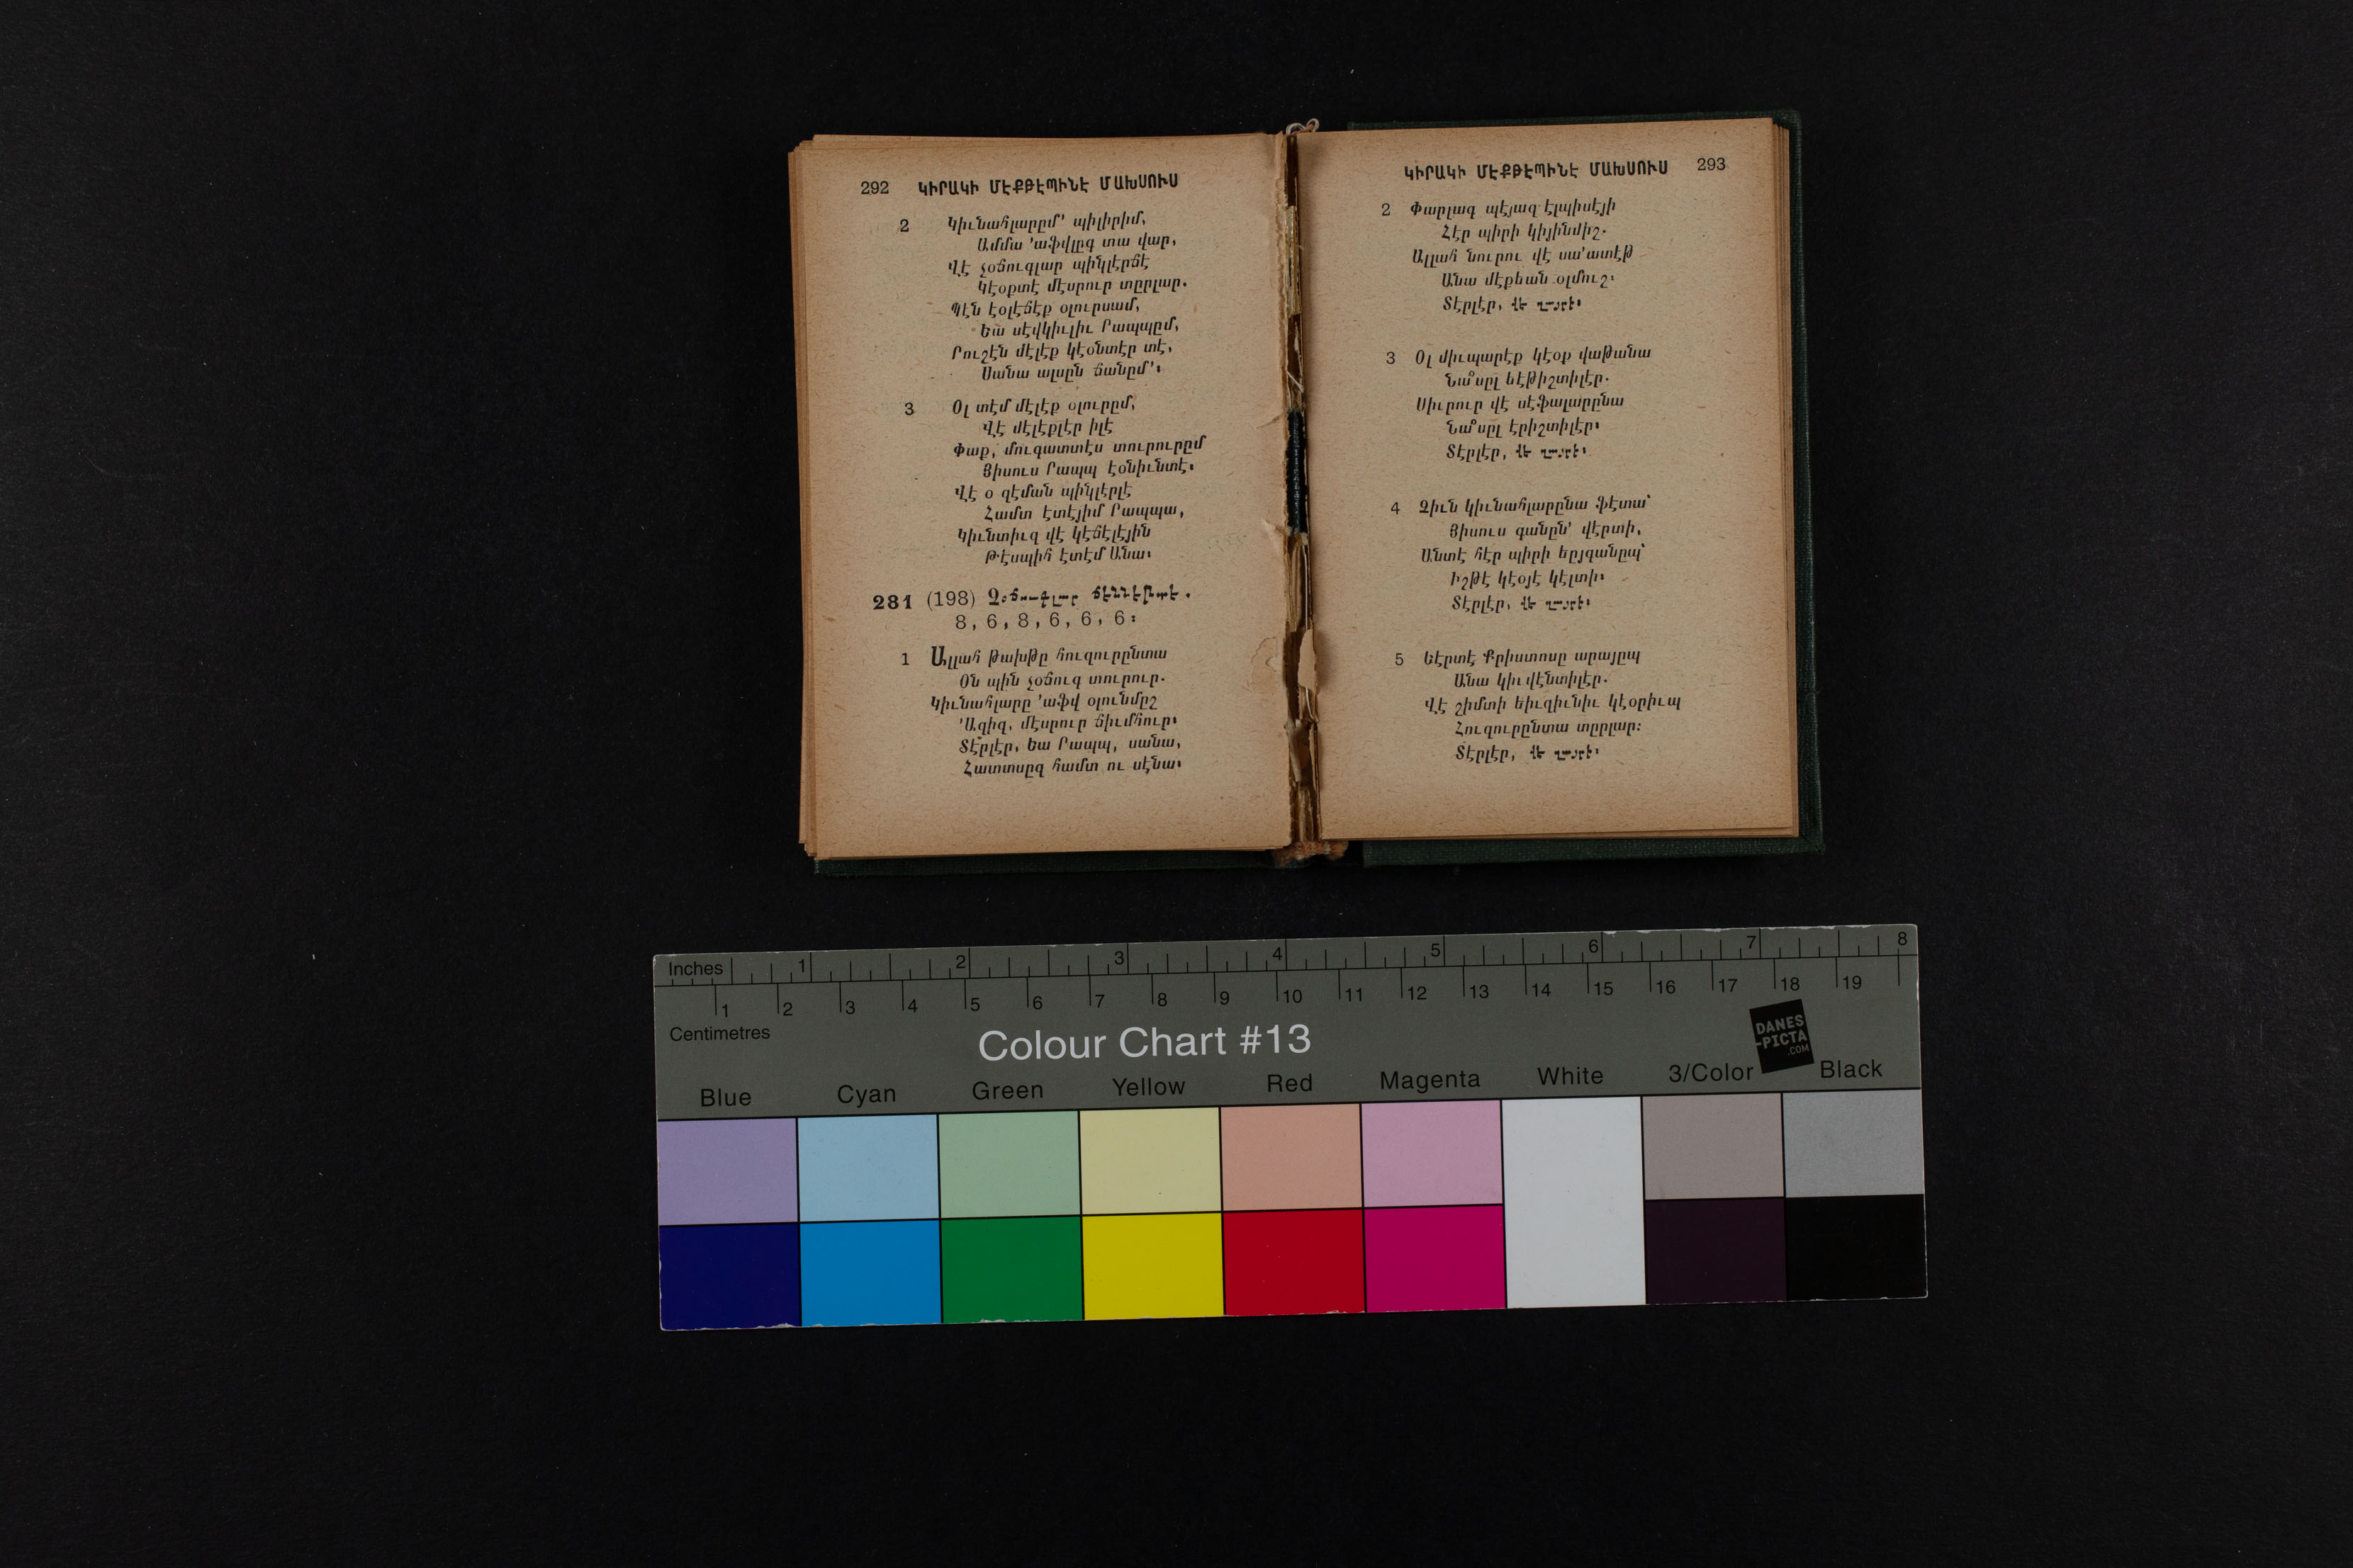 292 ԿԻՐԱԿԻ ՄԷՔԹԷՊԻՆԷ ՄԱԽՍՈՒՍ
2 Կիւնահլարըմ՚ պիլիրիմ,
Ամմա ՚աֆվլըգ տա վար,
Վէ չօճուգլար պինլէրճէ
Կէօքտէ մէսրուր տըրլար.
Պէն էօլէճէք օլուրսամ,
Եա սէվկիւլիւ Րապպըմ,
Րուշէն մէլէք կէօնտէր տէ,
Սանա ալսըն ճանըմ՚։
3 Օլ տէմ մէլէք օլուրըմ,
Վէ մէլէքլէր իլէ
Փաք, մուգատտէս տուրուրըմ
Յիսուս Րապպ էօնիւնտէ։
Վէ օ զէման պինլէրլէ
Համտ էտէյիմ Րապպա,
Կիւնտիւզ վէ կէճէլէյին
Թէսպիհ էտէմ Անա։
281 (198) Չօճուգլար ճէննէթտէ.
8, 6, 8, 6, 6, 6։
1 Ալլահ թախթը հուզուրընտա
Օն պին չօճուգ տուրուր.
Կիւնահլարը ՚աֆվ օլունմըշ
՚Ազիզ, մէսրուր ճիւմհուր։
Տէրլէր, Եա Րապպ, սանա,
Հատտսըզ համտ ու սէնա։
ԿԻՐԱԿԻ ՄԷՔԹԷՊԻՆԷ ՄԱԽՍՈՒՍ 293
2 Փարլագ պէյազ էլպիսէյի
Հէր պիրի կիյինմիշ.
Ալլահ նուրու վէ սա՚ատէթ
Անա մէքեան օլմուշ։
Տէրլէր, վէ ղայրէ։
3 Օլ միւպարէք կէօք վաթանա
Նա՞սըլ եէթիշտիլէր.
Սիւրուր վէ սէֆալարընա
Նա՞սըլ էրիշտիլէր։
Տէրլէր, վէ ղայրէ։
4 Չիւն կիւնահլարընա ֆէտա՝
Յիսուս գանըն՚ վէրտի,
Անտէ հէր պիրի երյգանըպ՝
Իշթէ կէօյէ կէլտի։
Տէրլէր, վէ ղայրէ։
5 Եէրտէ Քրիստոսը արայըպ
Անա կիւվէնտիլէր.
Վէ շիմտի եիւզիւնիւ կէօրիւպ
Հուզուրընտա տըրլար։
Տէրլէր, վէ ղայրէ։
Inches 1 2 3 4 5 6 7 8
1 2 3 4 5 6 7 8 9 10 11 12 13 14 15 16 17 18 19
Centimetres
Colour Chart #13
DANES
-PICTA
.COM
Blue Cyan Green Yellow Red Magenta White 3/Color Black